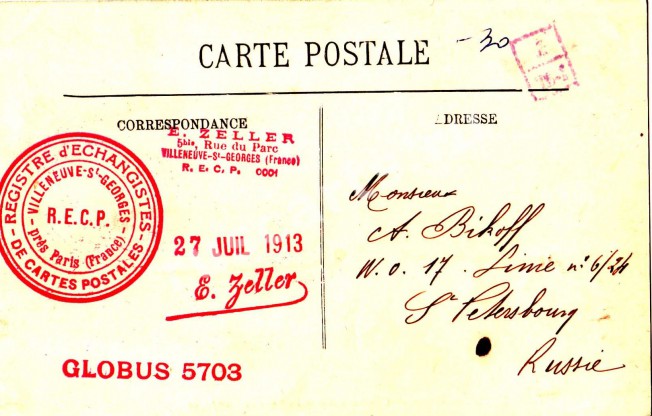 CARTE POSTALE
-30
CORRESPONDANCE
E. ZELLER
5bis, Rue du Parc
VILLENEUVE-St-GEORGES (France)
R. E. C. P. 0001
REGISTRE d'ECHANGISTES
DE CARTES POSTALES
VILLENEUVE-St-GEORGES
près Paris (France)
R.E.C.P.
27 JUIL 1913
E. Zeller
GLOBUS 5703
DRESSE
Monsieur
A. Bikoff
W. O. 17. Linie n° 6/24
St Petersbourg
Russie